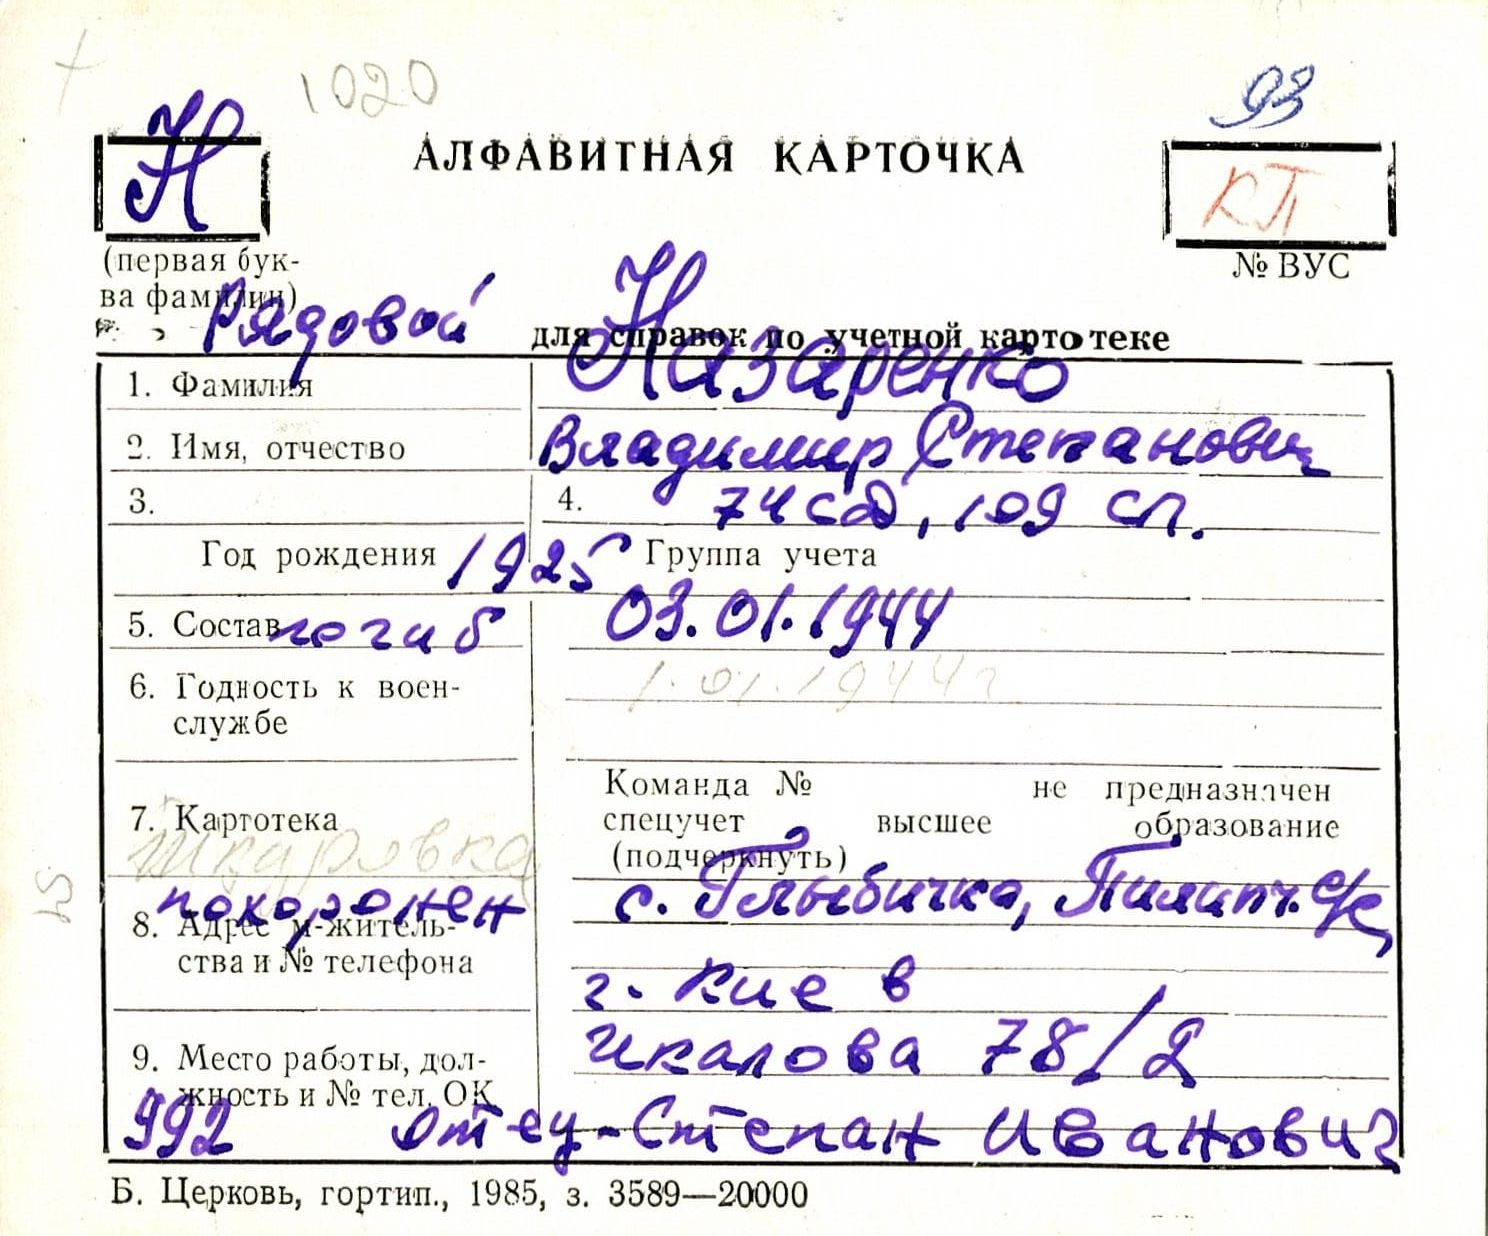 1020
93
Н
АЛФАВИТНАЯ КАРТОЧКА
КП
(первая бук-
ва фамилии)
№ ВУС
Рядовой
для справок по учетной картотеке
1. Фамилия Назаренко
2. Имя, отчество Владимир Степанович
3. 4. 74 сд, 109 сп.
Год рождения 1925 Группа учета
5. Состав погиб 03.01.1944
1.01.1944г
6. Годность к воен-
службе
Команда № не предназначен
7. Картотека спецучет высшее образование
(подчеркнуть)
Шкаровка
похоронен с. Глыбичка, Пилипч. с/с
8. Адрес м-житель-
ства и № телефона
г. Киев
Чкалова 78/2
9. Место работы, дол-
жность и № тел. ОК
992 отец-Степан Иванович
Б. Церковь, гортип., 1985, з. 3589—20000